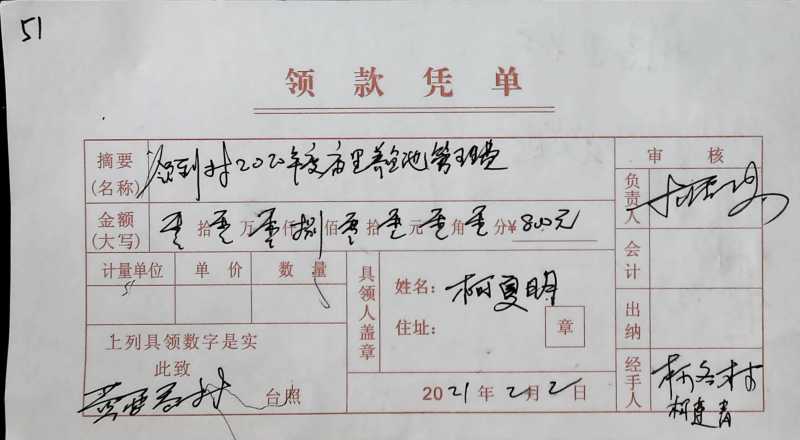 51
领款凭单
摘要(名称) 领到村2020年度市里养鱼池管理费
审核
金额(大写) 零拾零万零仟捌佰零拾零元零角零分¥800元
负责人
计量单位 单价 数量
具领人盖章
姓名：柯夏明
住址：
章
会计
出纳
上列具领数字是实
此致
台照
2021年2月2日
经手人
柯建青